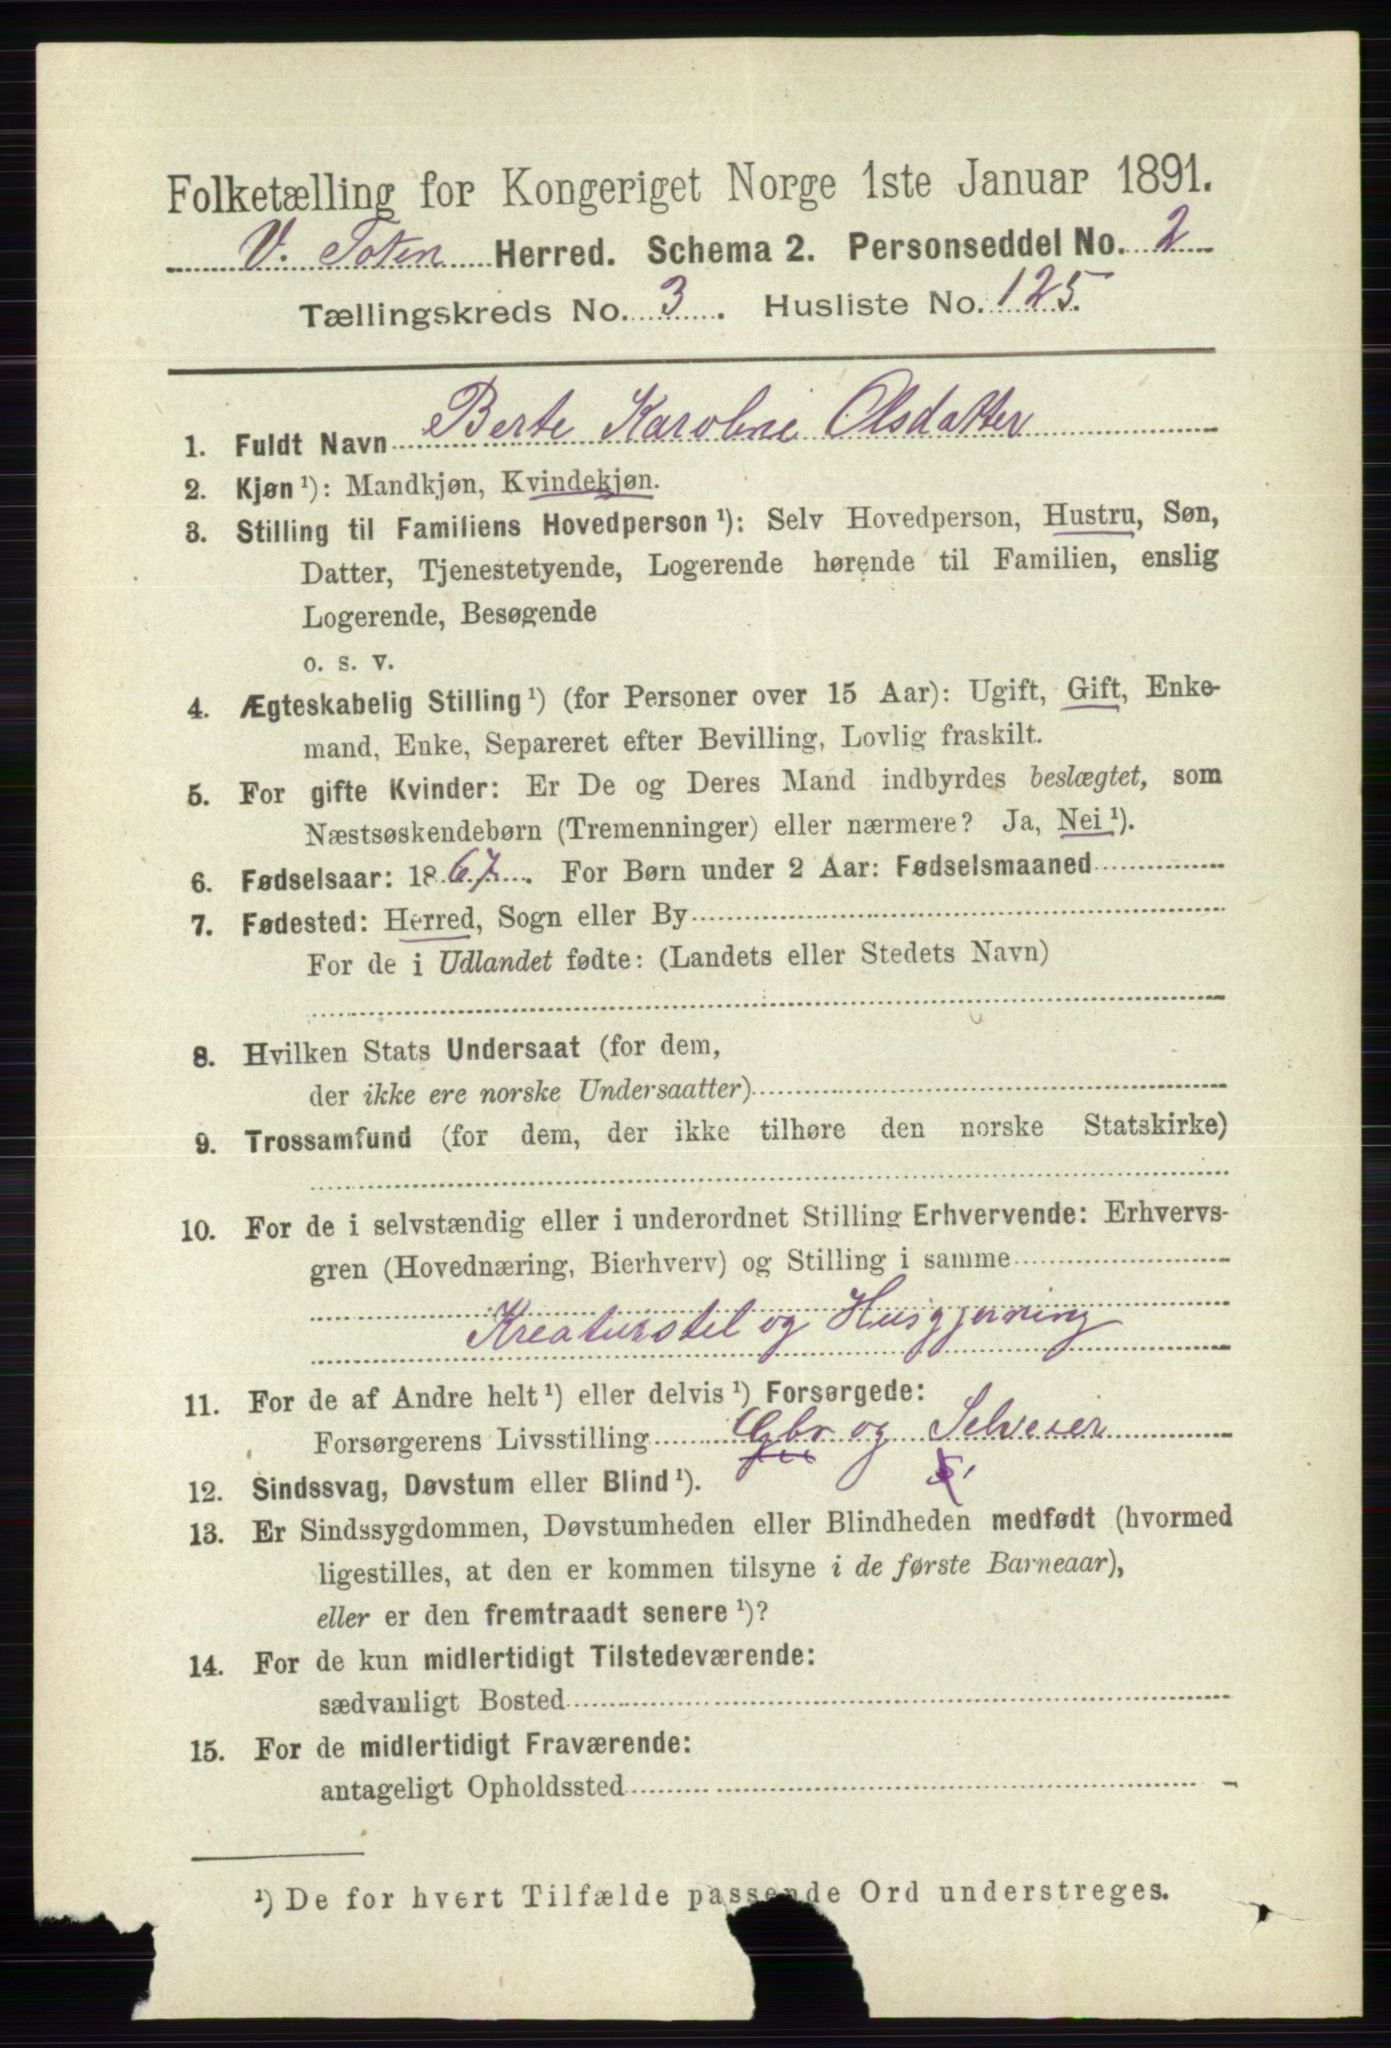 Folketælling for Kongeriget Norge 1ste Januar 1891.
V. Toten Herred. Schema 2. Personseddel No. 2
Tællingskreds No. 3. Husliste No. 125.
1. Fuldt Navn Berte Karoline Olsdatter
2. Kjøn ¹): Mandkjøn, Kvindekjøn.
3. Stilling til Familiens Hovedperson ¹): Selv Hovedperson, Hustru, Søn,
Datter, Tjenestetyende, Logerende hørende til Familien, enslig
Logerende, Besøgende
o. s. v.
4. Ægteskabelig Stilling ¹) (for Personer over 15 Aar): Ugift, Gift, Enke-
mand, Enke, Separeret efter Bevilling, Lovlig fraskilt.
5. For gifte Kvinder: Er De og Deres Mand indbyrdes beslægtet, som
Næstsøskendebørn (Tremenninger) eller nærmere? Ja, Nei ¹).
6. Fødselsaar: 1867. For Børn under 2 Aar: Fødselsmaaned
7. Fødested: Herred, Sogn eller By
For de i Udlandet fødte: (Landets eller Stedets Navn)
8. Hvilken Stats Undersaat (for dem,
der ikke ere norske Undersaatter)
9. Trossamfund (for dem, der ikke tilhøre den norske Statskirke)
10. For de i selvstændig eller i underordnet Stilling Erhvervende: Erhvervs-
gren (Hovednæring, Bierhverv) og Stilling i samme
Kreaturstel og Husgjerning
11. For de af Andre helt ¹) eller delvis ¹) Forsørgede:
Forsørgerens Livsstilling Gbr og Selveier
12. Sindssvag, Døvstum eller Blind ¹).
13. Er Sindssygdommen, Døvstumheden eller Blindheden medfødt (hvormed
ligestilles, at den er kommen tilsyne i de første Barneaar),
eller er den fremtraadt senere ¹)?
14. For de kun midlertidigt Tilstedeværende:
sædvanligt Bosted
15. For de midlertidigt Fraværende:
antageligt Opholdssted
¹) De for hvert Tilfælde passende Ord understreges.